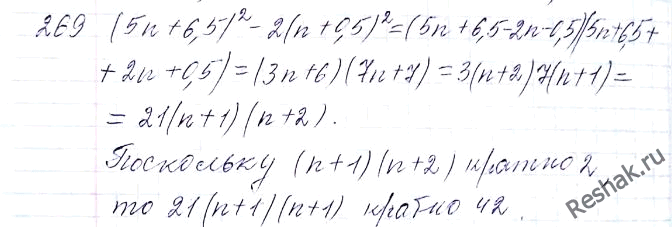 269 (5n+6,5)²-2(n+0,5)²=(5n+6,5-2n-0,5)(5n+6,5+
+2n+0,5)=(3n+6)(7n+7)=3(n+2)7(n+1)=
=21(n+1)(n+2).
Поскольку (n+1)(n+2) кратно 2
то 21(n+1)(n+1) кратно 42.
Reshak.ru